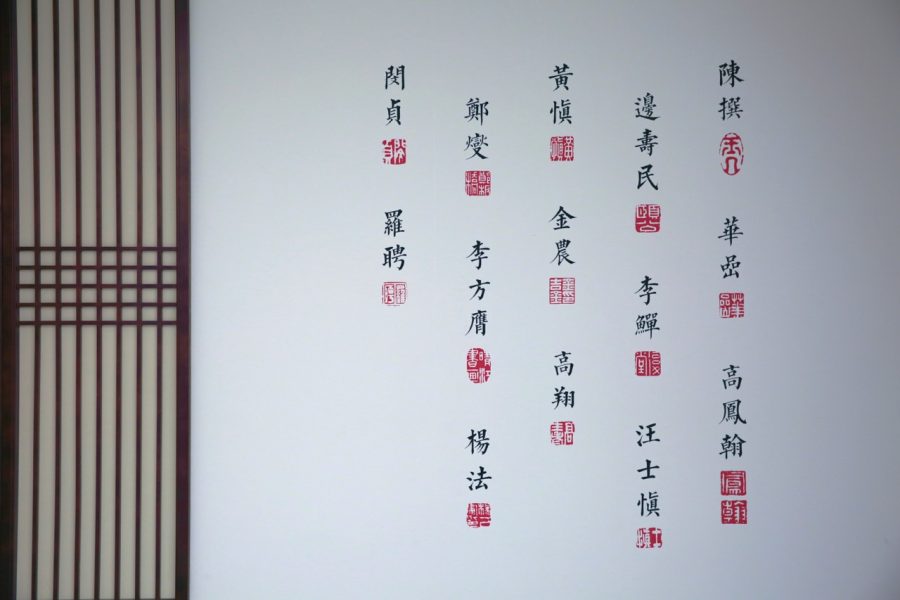 陳撰 華嵒 高鳳翰
邊壽民 李鱓 汪士慎
黃慎 金農 高翔
鄭燮 李方膺 楊法
閔貞 羅聘